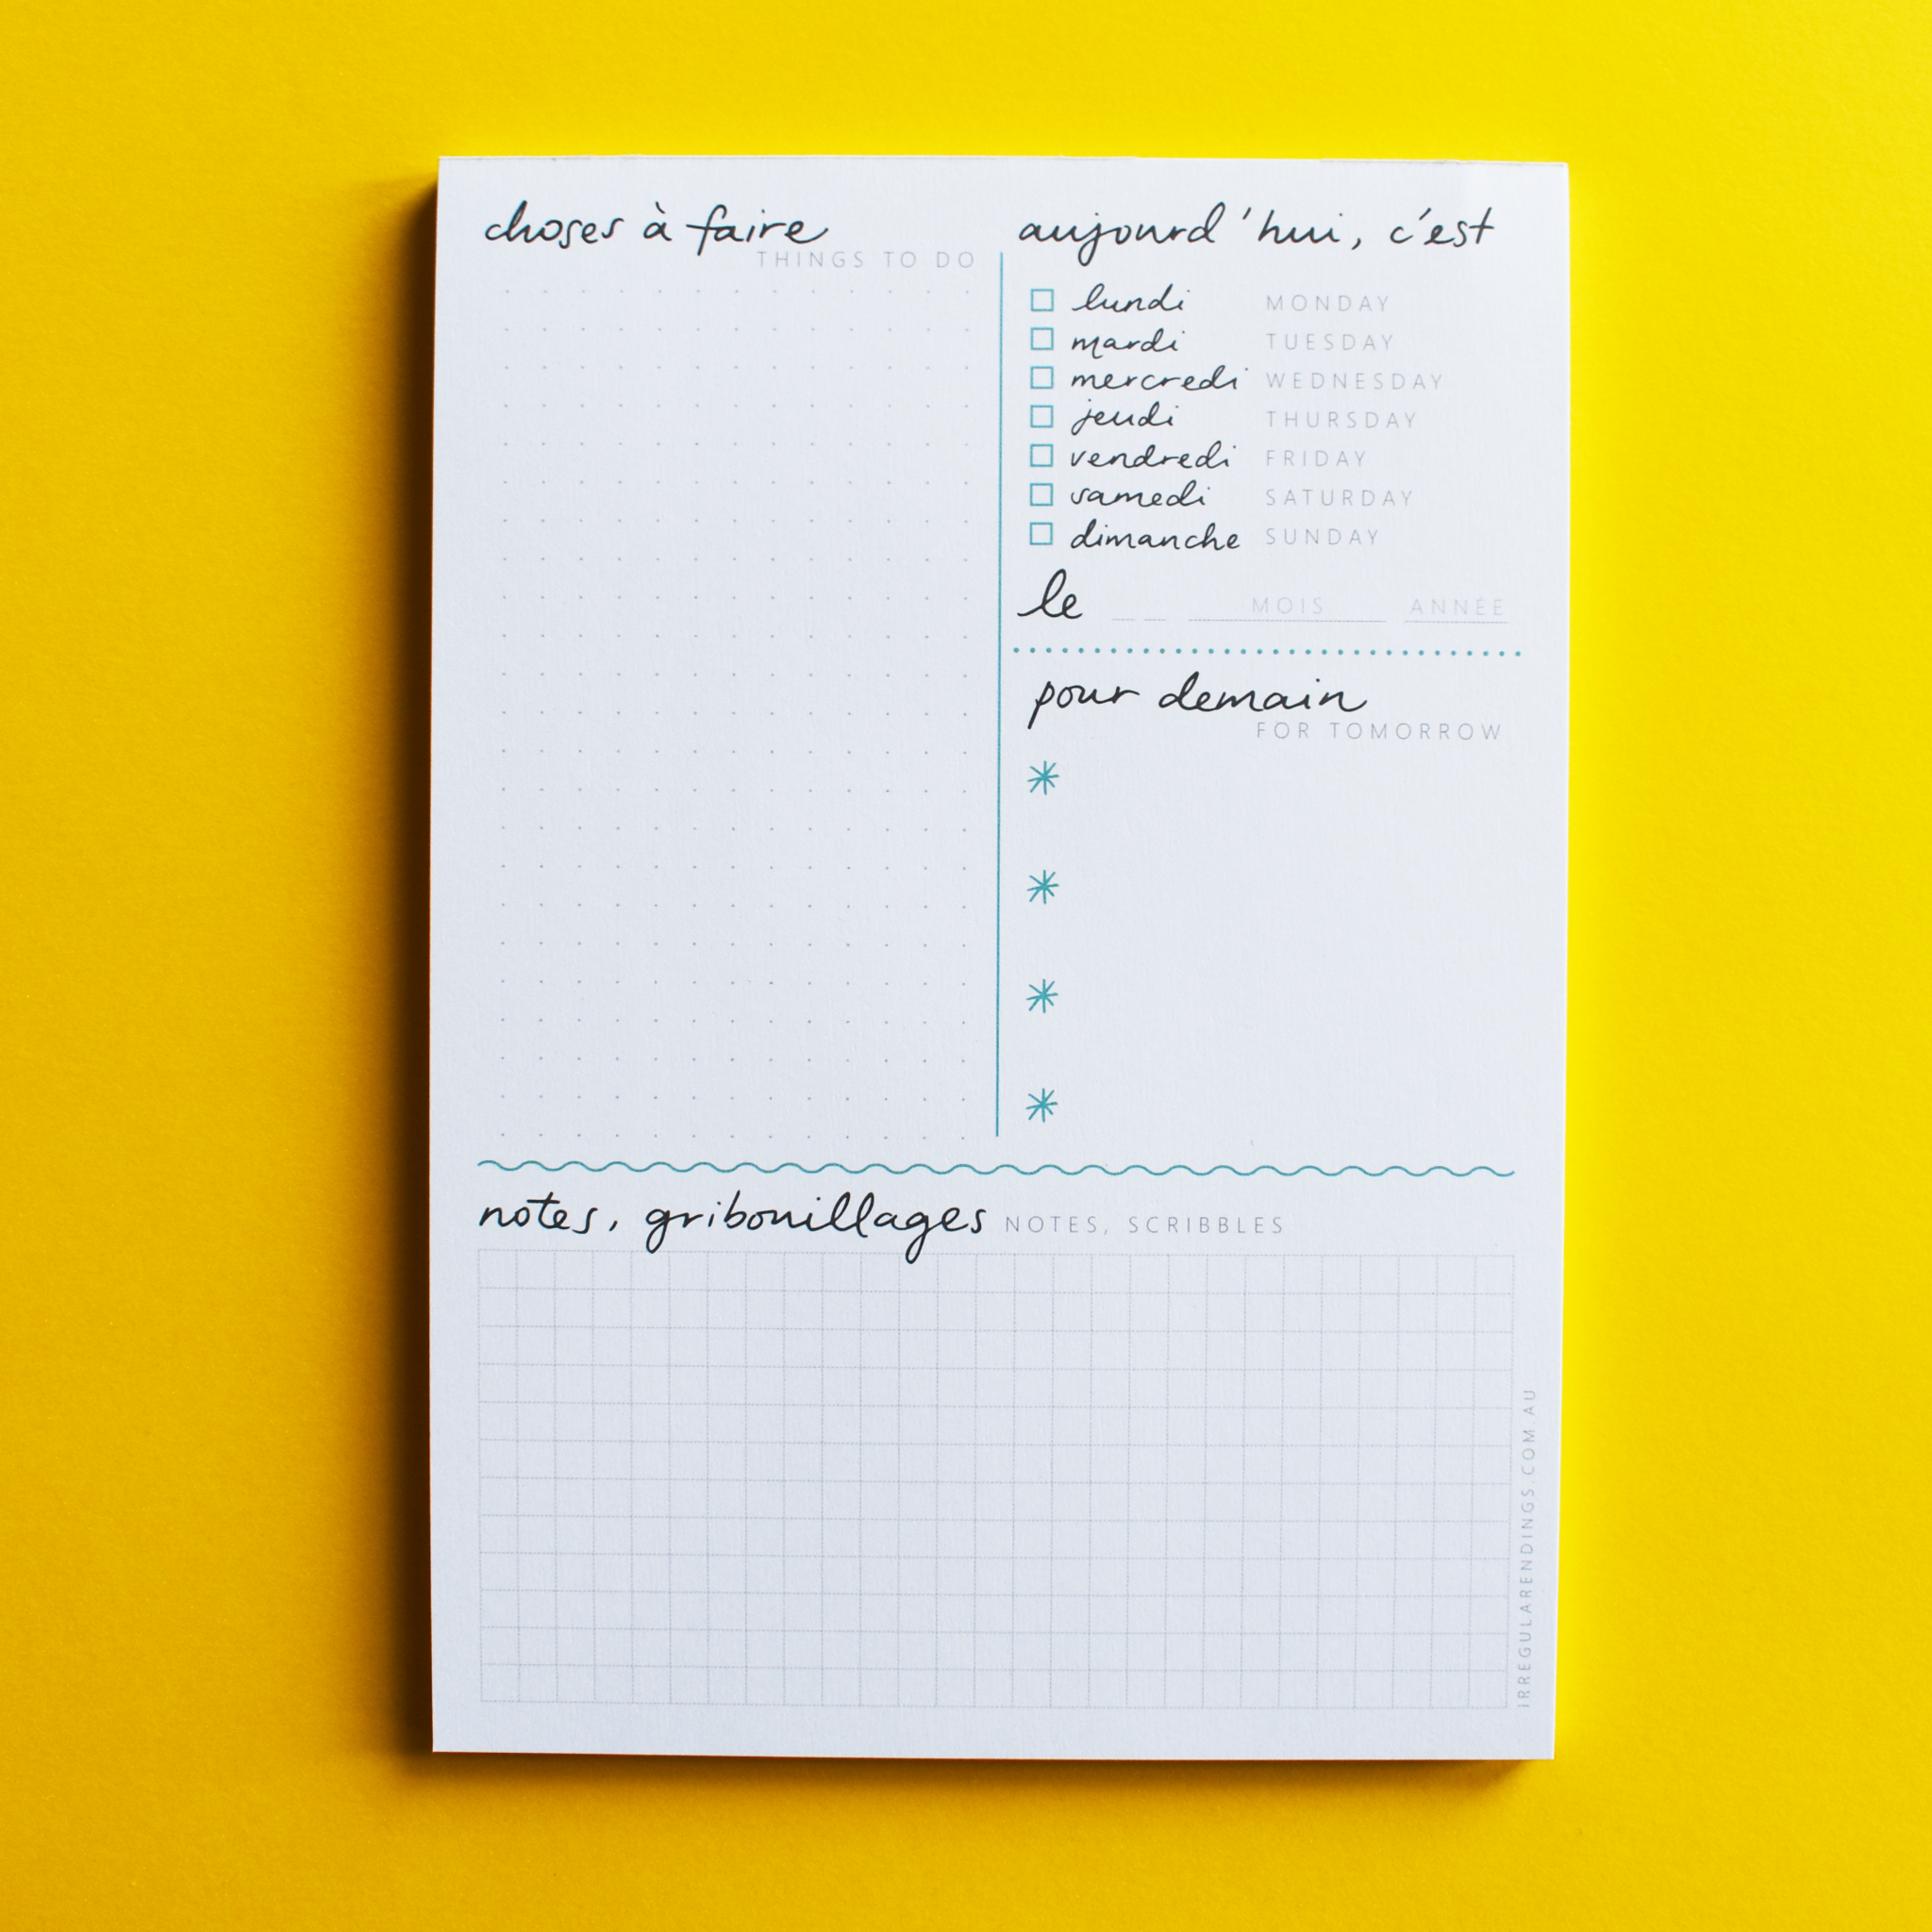 choses à faire
THINGS TO DO
aujourd'hui, c'est
lundi MONDAY
mardi TUESDAY
mercredi WEDNESDAY
jeudi THURSDAY
vendredi FRIDAY
samedi SATURDAY
dimanche SUNDAY
le MOIS ANNÉE
pour demain
FOR TOMORROW
notes, gribouillages NOTES, SCRIBBLES
IRREGULARENDINGS.COM.AU